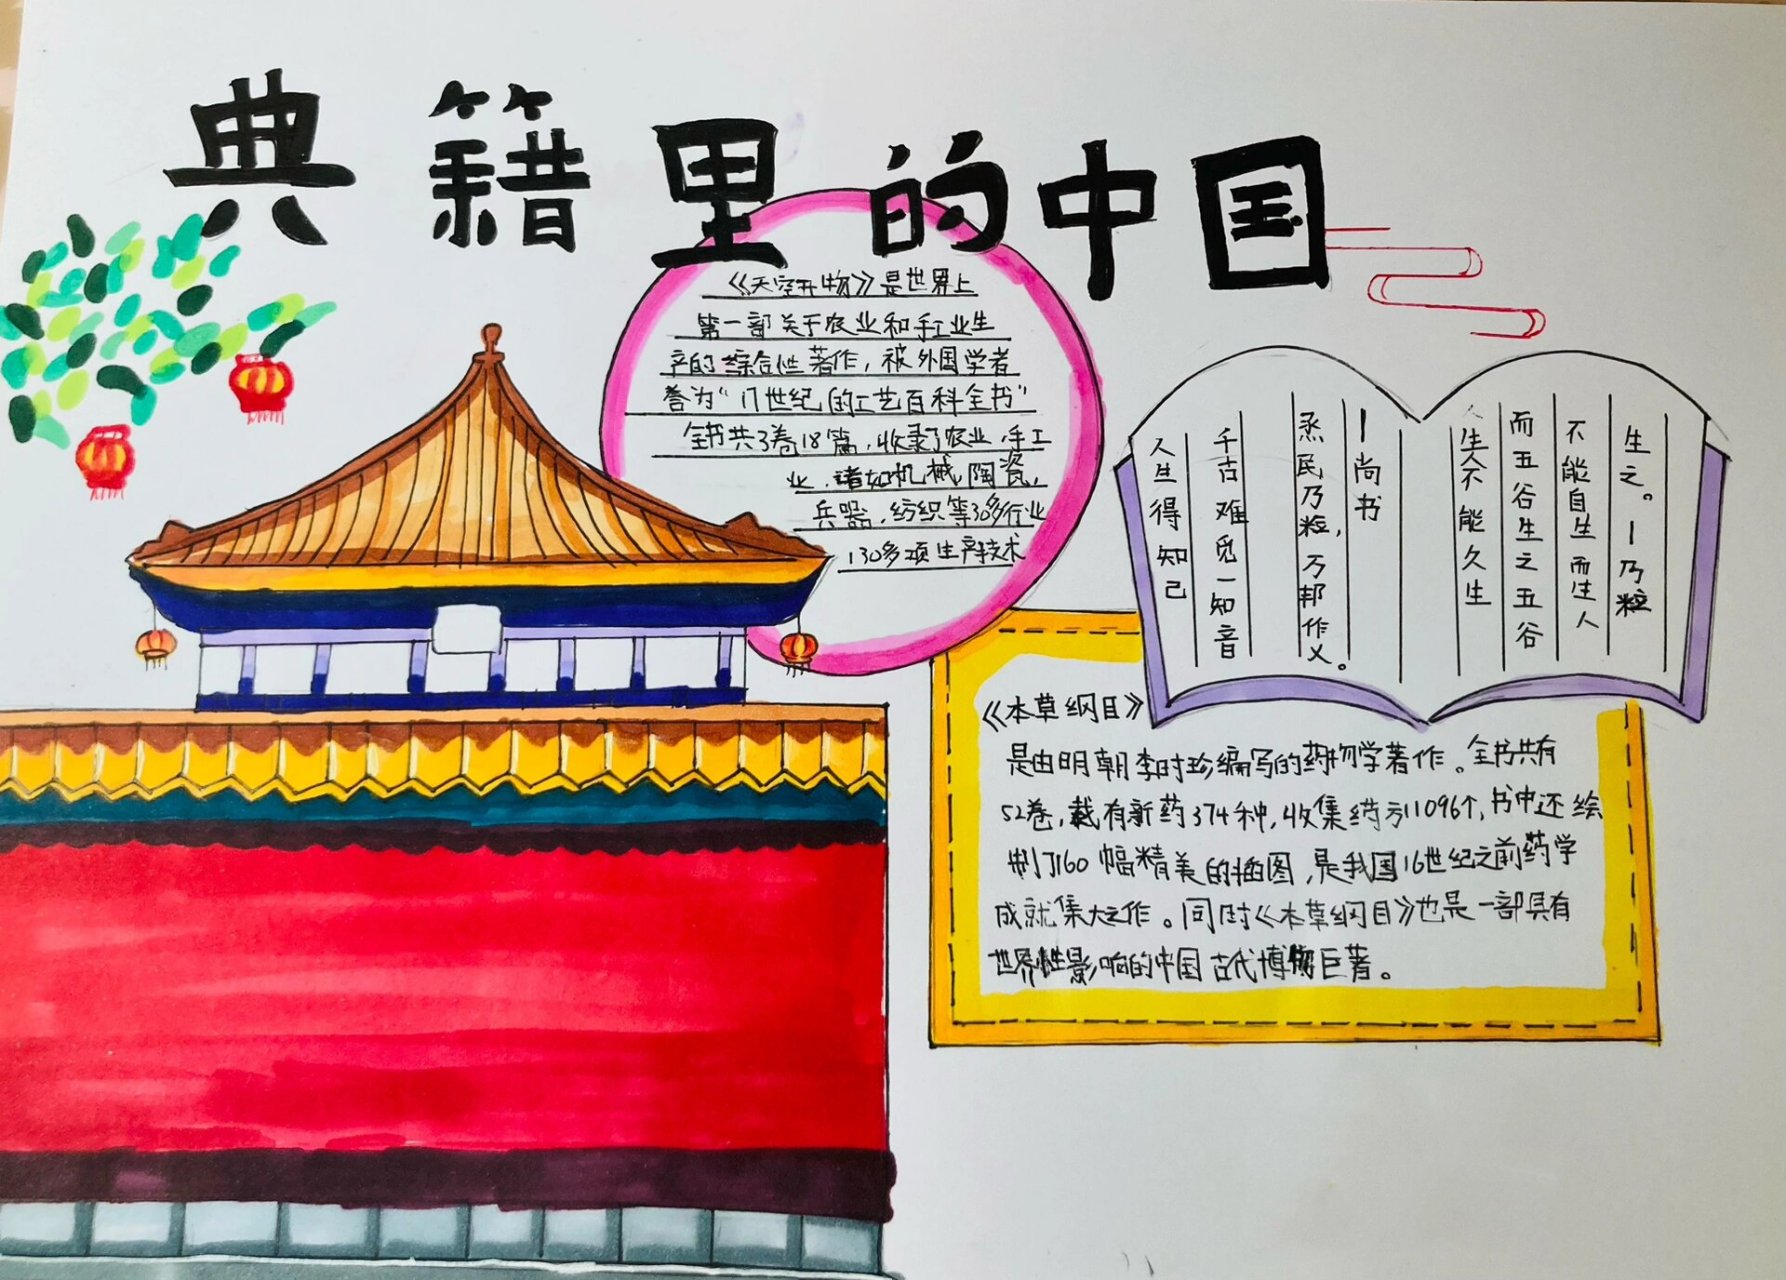 典籍里的中国
《天空开物》是世界上
第一部关于农业和手工业生
产的综合性著作，被外国学者
誉为“17世纪的工艺百科全书”
全书共3卷18篇，收录了农业，手工
业，诸如机械，陶瓷，
兵器，纺织等30多行业
130多项生产技术
人生得知己
千古难觅一知音
烝民乃粒，万邦作乂。
—尚书
生人不能久生
而五谷生之五谷
不能自生而生人
生之。—乃粒
《本草纲目》
是由明朝李时珍编写的药物学著作。全书共有
52卷，载有新药374种，收集药方11096个，书中还绘
制了1160幅精美的插图，是我国16世纪之前药学
成就集大之作。同时《本草纲目》也是一部具有
世界性影响的中国古代博物巨著。